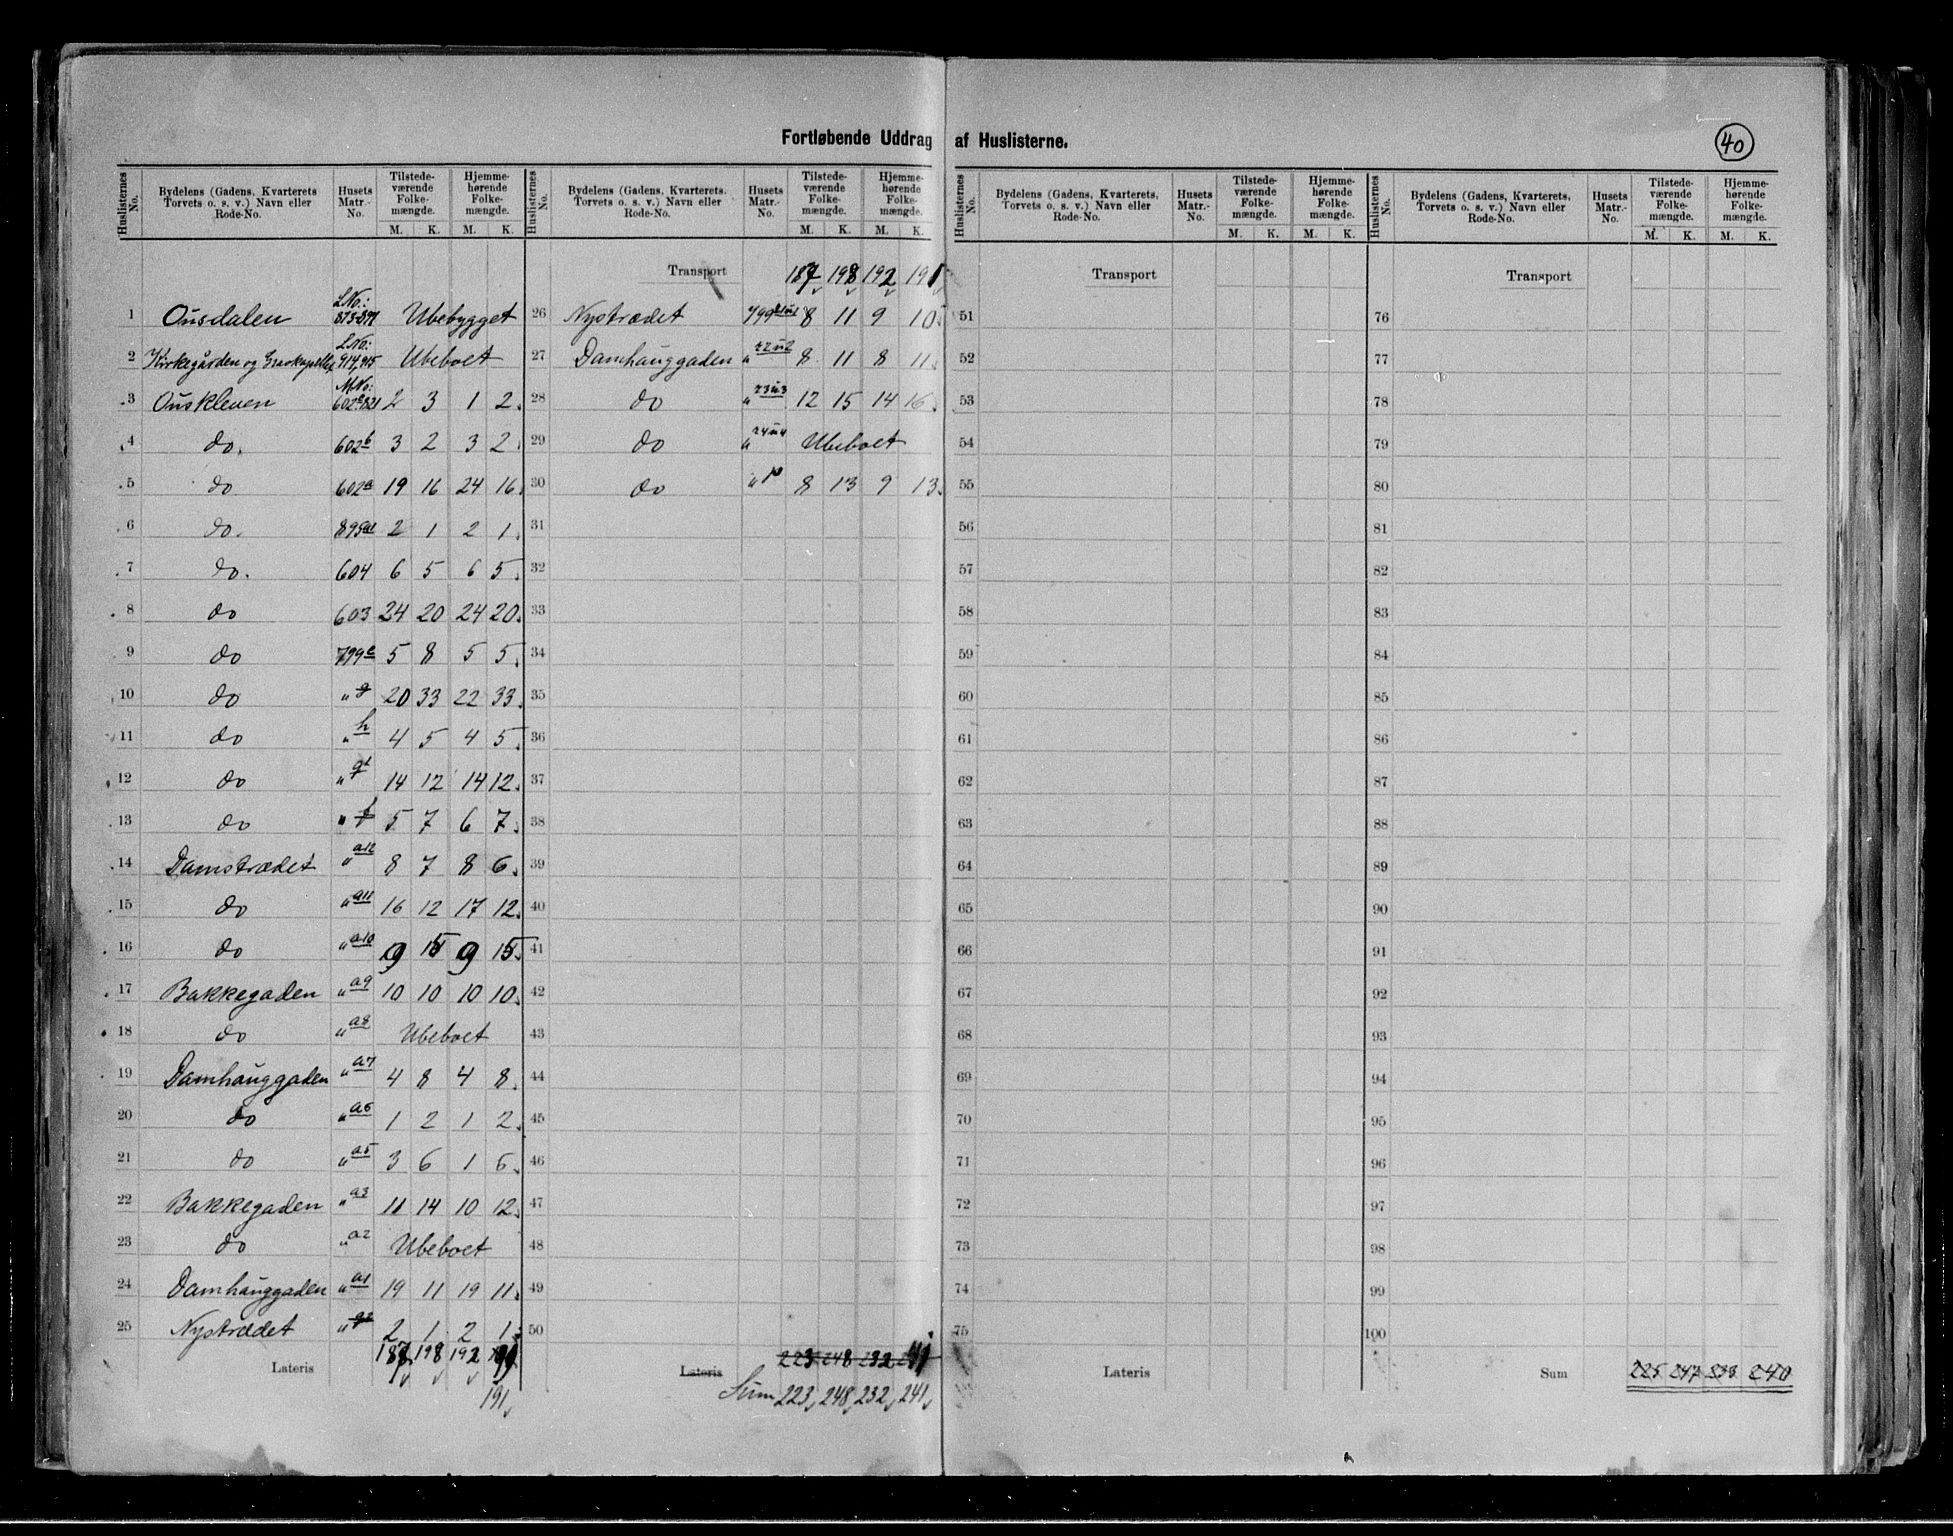 Fortløbende Uddrag af Huslisterne.
40
Huslisternes No. | Bydelens (Gadens, Kvarterets Torvets o. s. v.) Navn eller Rode-No. | Husets Matr.-No. | Tilstedeværende Folkemængde. M. K. | Hjemmehørende Folkemængde. M. K.
1 Ousdalen L.No.: 873-891 Ubebygget
2 Kirkegården og Gravkapellet L.No: 914, 915 Ubeboet
3 Ouskleven M.No: 2 3 1 2
4 do. 602b 3 2 3 2
5 do 602a 19 16 24 16
6 do. 895a1 2 1 2 1
7 do. 604 6 5 6 5
8 do 603 24 20 24 20
9 do 799e 5 8 5 5
10 do „ g 20 33 22 33
11 do „ h 4 5 4 5
12 do „ 14 12 14 12
13 do „ f 5 7 6 7
14 Damstrædet „ a12 8 7 8 6
15 do „ a11 16 12 17 12
16 do „ a10 9 15 9 15
17 Bakkegaden „ a9 10 10 10 10
18 do „ a8 Ubeboet
19 Damhauggaden „ a7 4 8 4 8
20 do „ a6 1 2 1 2
21 do „ a5 3 6 1 6
22 Bakkegaden „ a3 11 14 10 12
23 do „ a2 Ubeboet
24 Damhauggaden „ a1 19 11 19 11
25 Nystrædet „ 2 1 2 1
Lateris 187 198 192
191
Huslisternes No. | Bydelens (Gadens, Kvarterets. Torvets o. s. v.) Navn eller Rode-No. | Husets Matr.-No. | Tilstedeværende Folkemængde. M. K. | Hjemmehørende Folkemængde. M. K.
Transport 187 198 192 191
26 Nystrædet 799 8 11 9 10
27 Damhauggaden „ 22u2 8 11 8 11
28 do „ 23u3 12 15 14 16
29 do „ 24u4 Ubeboet
30 do „ 8 13 9 13
31
32
33
34
35
36
37
38
39
40
41
42
43
44
45
46
47
48
49
50
Lateris 223 248 232 241
Sum 223 248 232 241
Huslisternes No. | Bydelens (Gadens, Kvarterets, Torvets o. s. v.) Navn eller Rode-No. | Husets Matr.-No. | Tilstedeværende Folkemængde. M. K. | Hjemmehørende Folkemængde. M. K.
Transport
51
52
53
54
55
56
57
58
59
60
61
62
63
64
65
66
67
68
69
70
71
72
73
74
75
Lateris
Huslisternes No. | Bydelens (Gadens, Kvarterets Torvets o. s. v.) Navn eller Rode-No. | Husets Matr.-No. | Tilstedeværende Folkemængde. M. K. | Hjemmehørende Folkemængde. M. K.
Transport
76
77
78
79
80
81
82
83
84
85
86
87
88
89
90
91
92
93
94
95
96
97
98
99
100
Sum 225 247 233 240